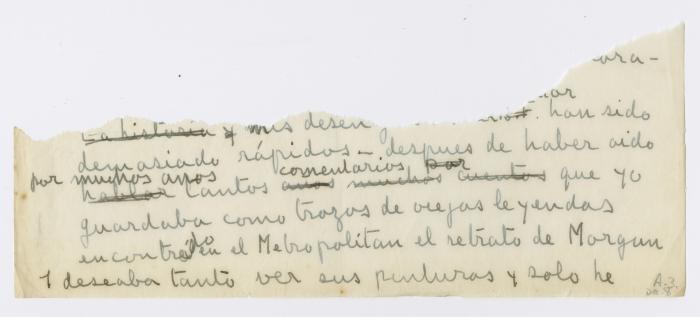 ara-
la historia y mis desen han sido
demasiado rápidos - despues de haber oido
por muchos anos comentarios por
hablar tantos anos muchos cuentos que yo
guardaba como trozos de viejas leyendas
encontredo en el Metropolitan el retrato de Morgan
Y deseaba tanto ver sus pinturas y solo he
A-3